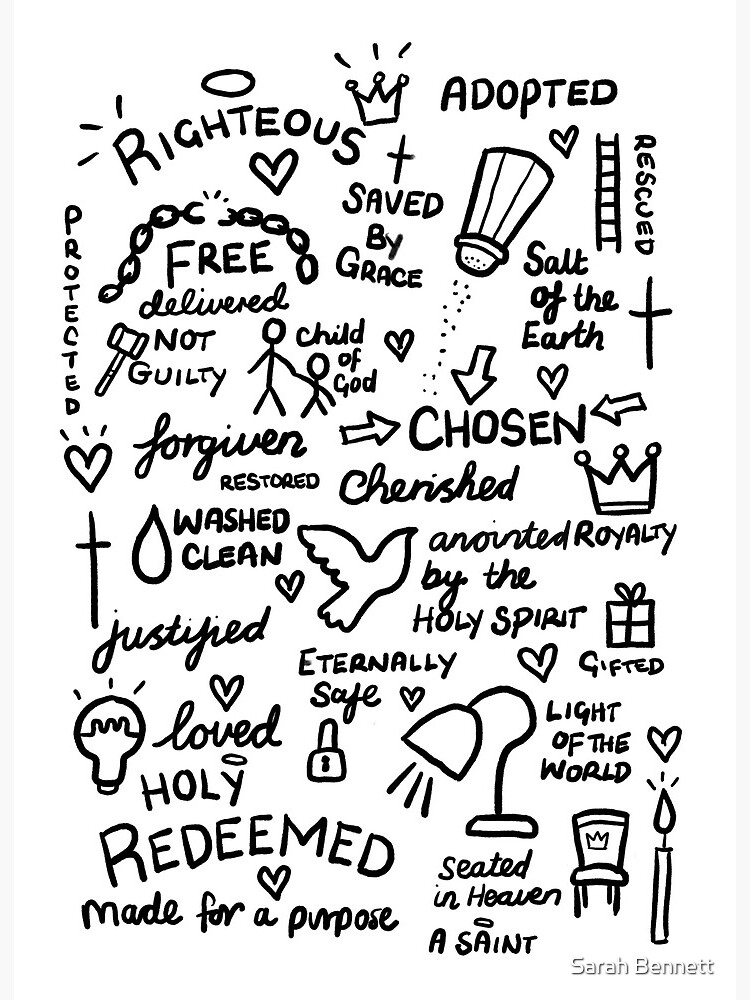 RIGHTEOUS
ADOPTED
PROTECTED
FREE
delivered
SAVED
By
GRACE
RESCUED
Salt
of the
Earth
NOT
GUILTY
Child
of
God
forgiven
RESTORED
CHOSEN
Cherished
WASHED
CLEAN
anointed
by the
HOLY SPIRIT
ROYALTY
justified
ETERNALLY
Safe
GIFTED
loved
HOLY
LIGHT
OF THE
WORLD
REDEEMED
made for a purpose
Seated
in Heaven
A SAINT
Sarah Bennett